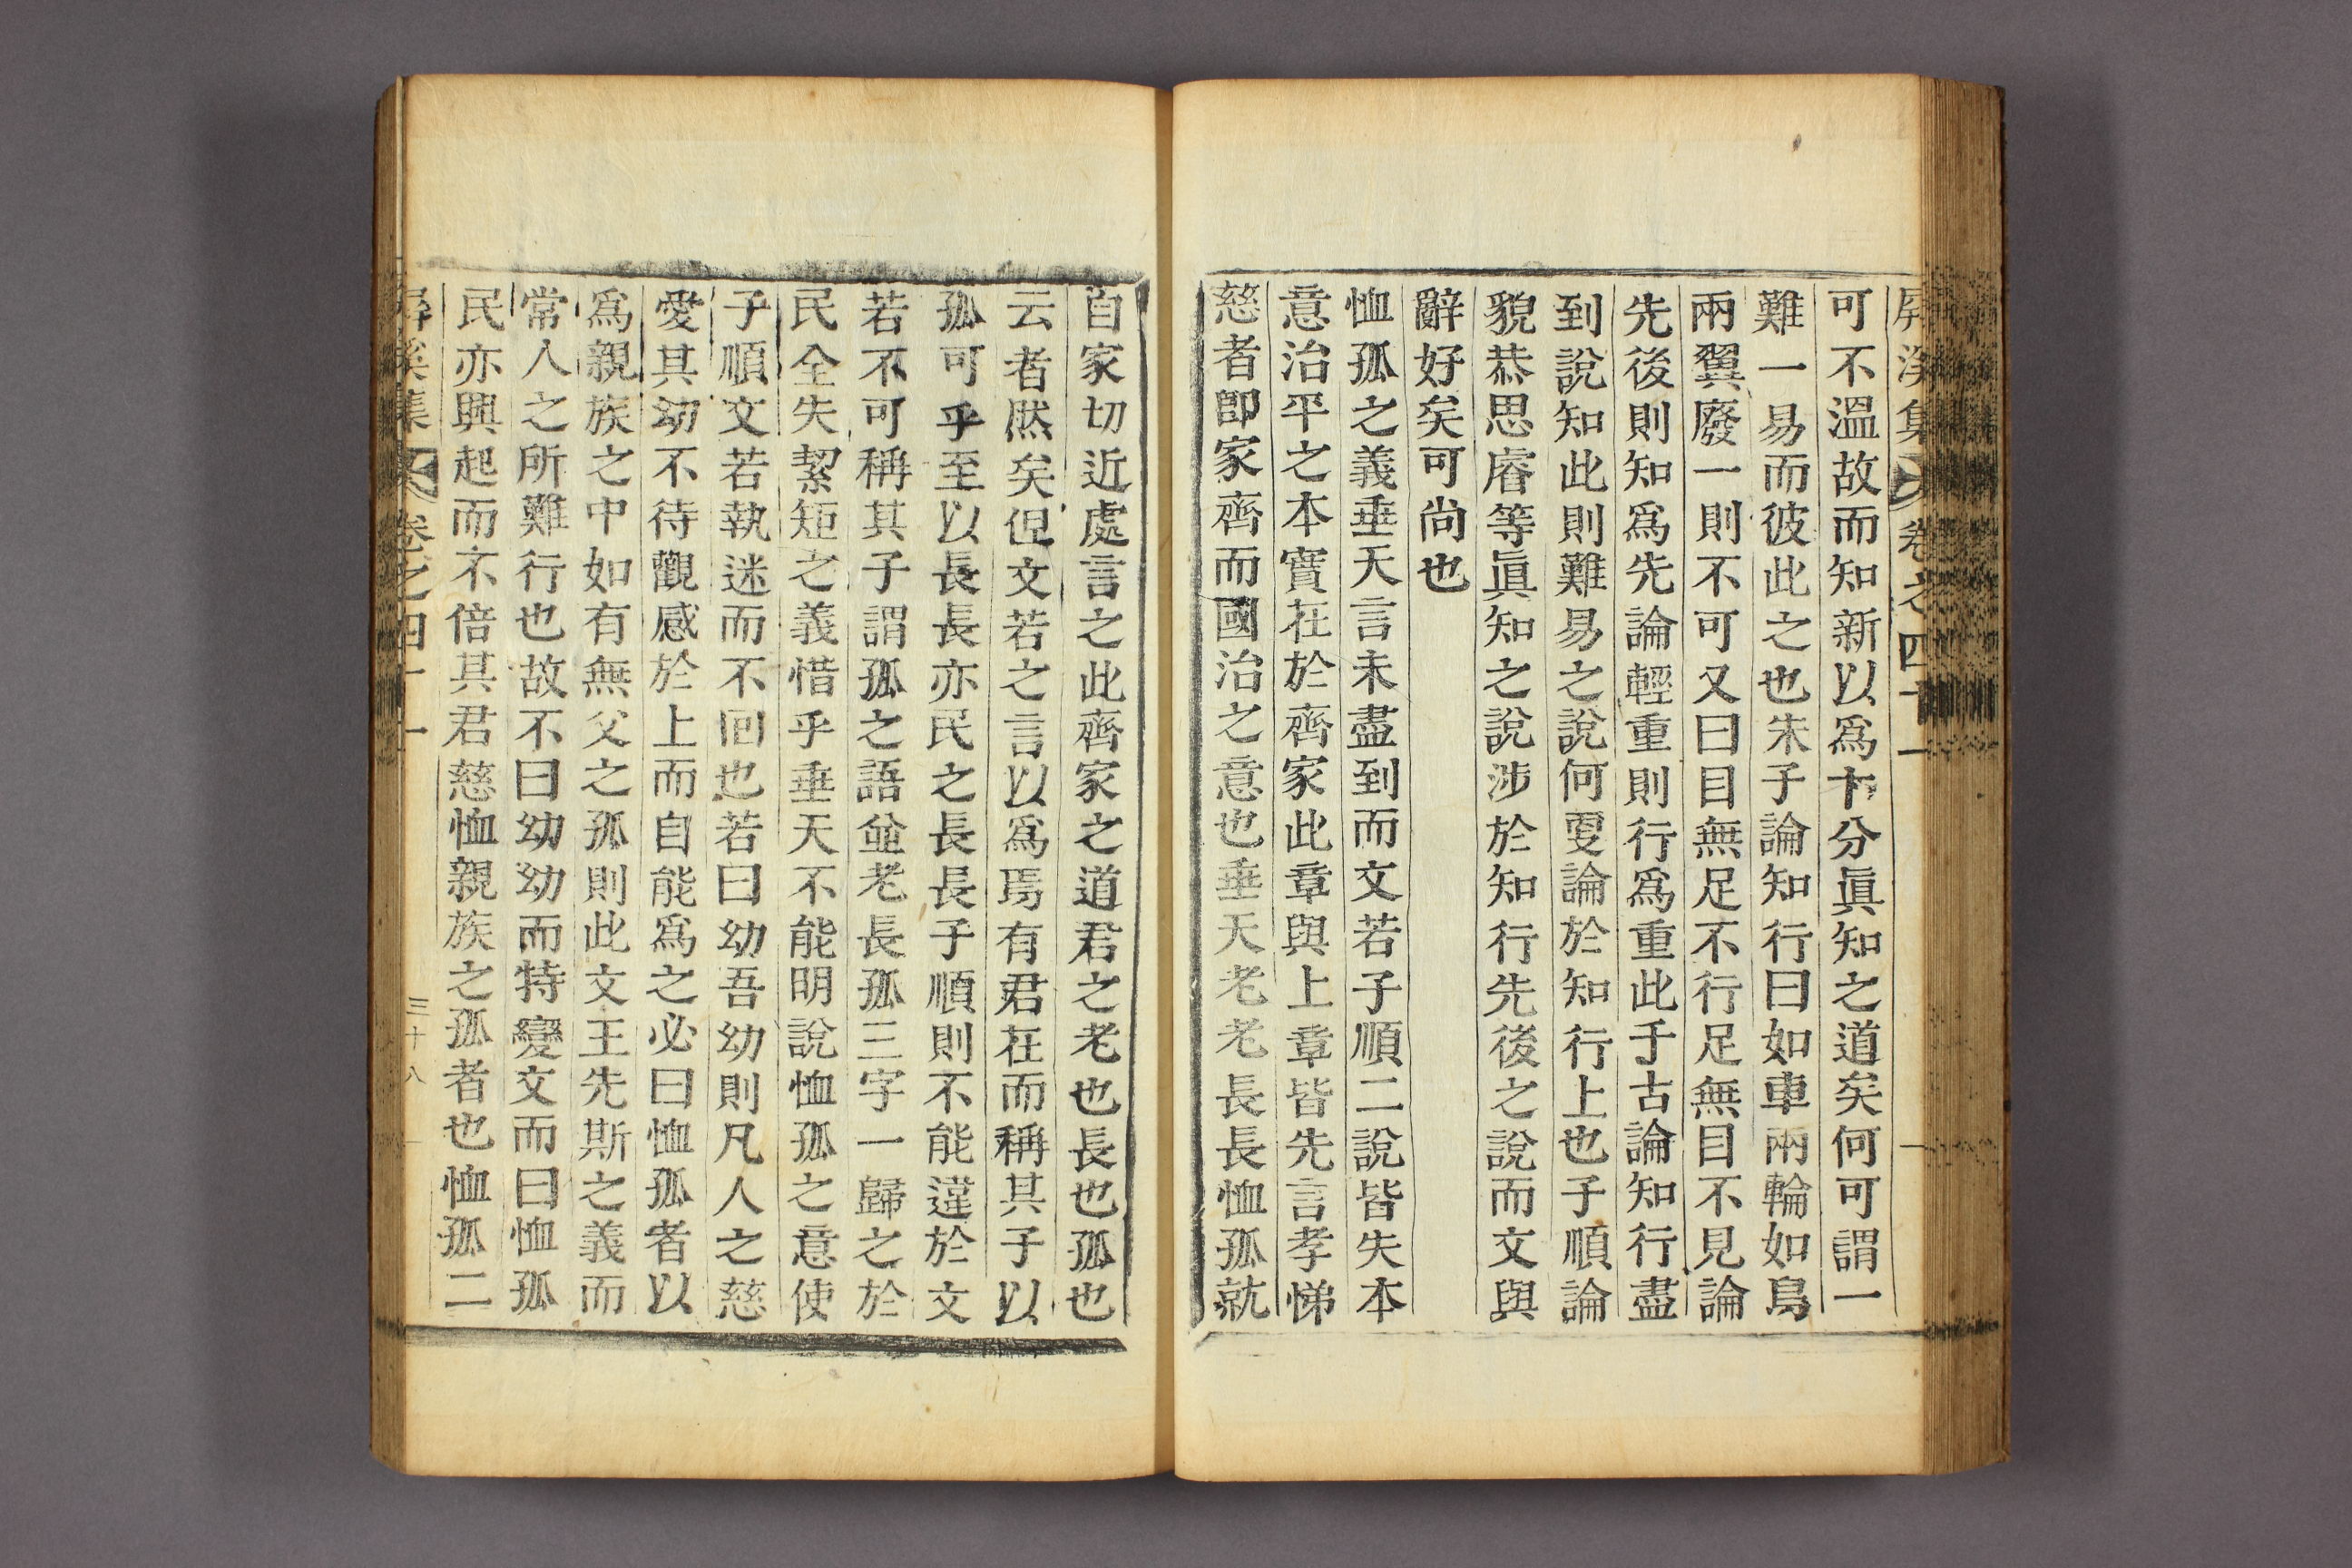 屛溪集 卷之四十一
可不溫故而知新以爲十分眞知之道矣何可謂一
難一易而彼此之也朱子論知行曰如車兩輪如鳥
兩翼廢一則不可又曰目無足不行足無目不見論
先後則知爲先論輕重則行爲重此于古論知行盡
到說知此則難易之說何更論於知行上也子順論
貌恭思睿等眞知之說涉於知行先後之說而文與
辭好矣可尙也
恤孤之義垂天言未盡到而文若子順二說皆失本
意治平之本實在於齊家此章與上章皆先言孝悌
慈者卽家齊而國治之意也垂天老老長長恤孤就
自家切近處言之此齊家之道君之老也長也孤也
云者㷼矣但文若之言以爲焉有君在而稱其子以
孤可乎至以長長亦民之長長子順則不能違於文
若不可稱其子謂孤之語並老長孤三字一歸之於
民全失絜矩之義惜乎垂天不能明說恤孤之意使
子順文若執迷而不回也若曰幼吾幼則凡人之慈
愛其幼不待觀感於上而自能爲之必曰恤孤者以
爲親族之中如有無父之孤則此文王先斯之義而
常人之所難行也故不曰幼幼而特變文而曰恤孤
民亦興起而不倍其君慈恤親族之孤者也恤孤二
屛溪集 卷之四十一 三十八